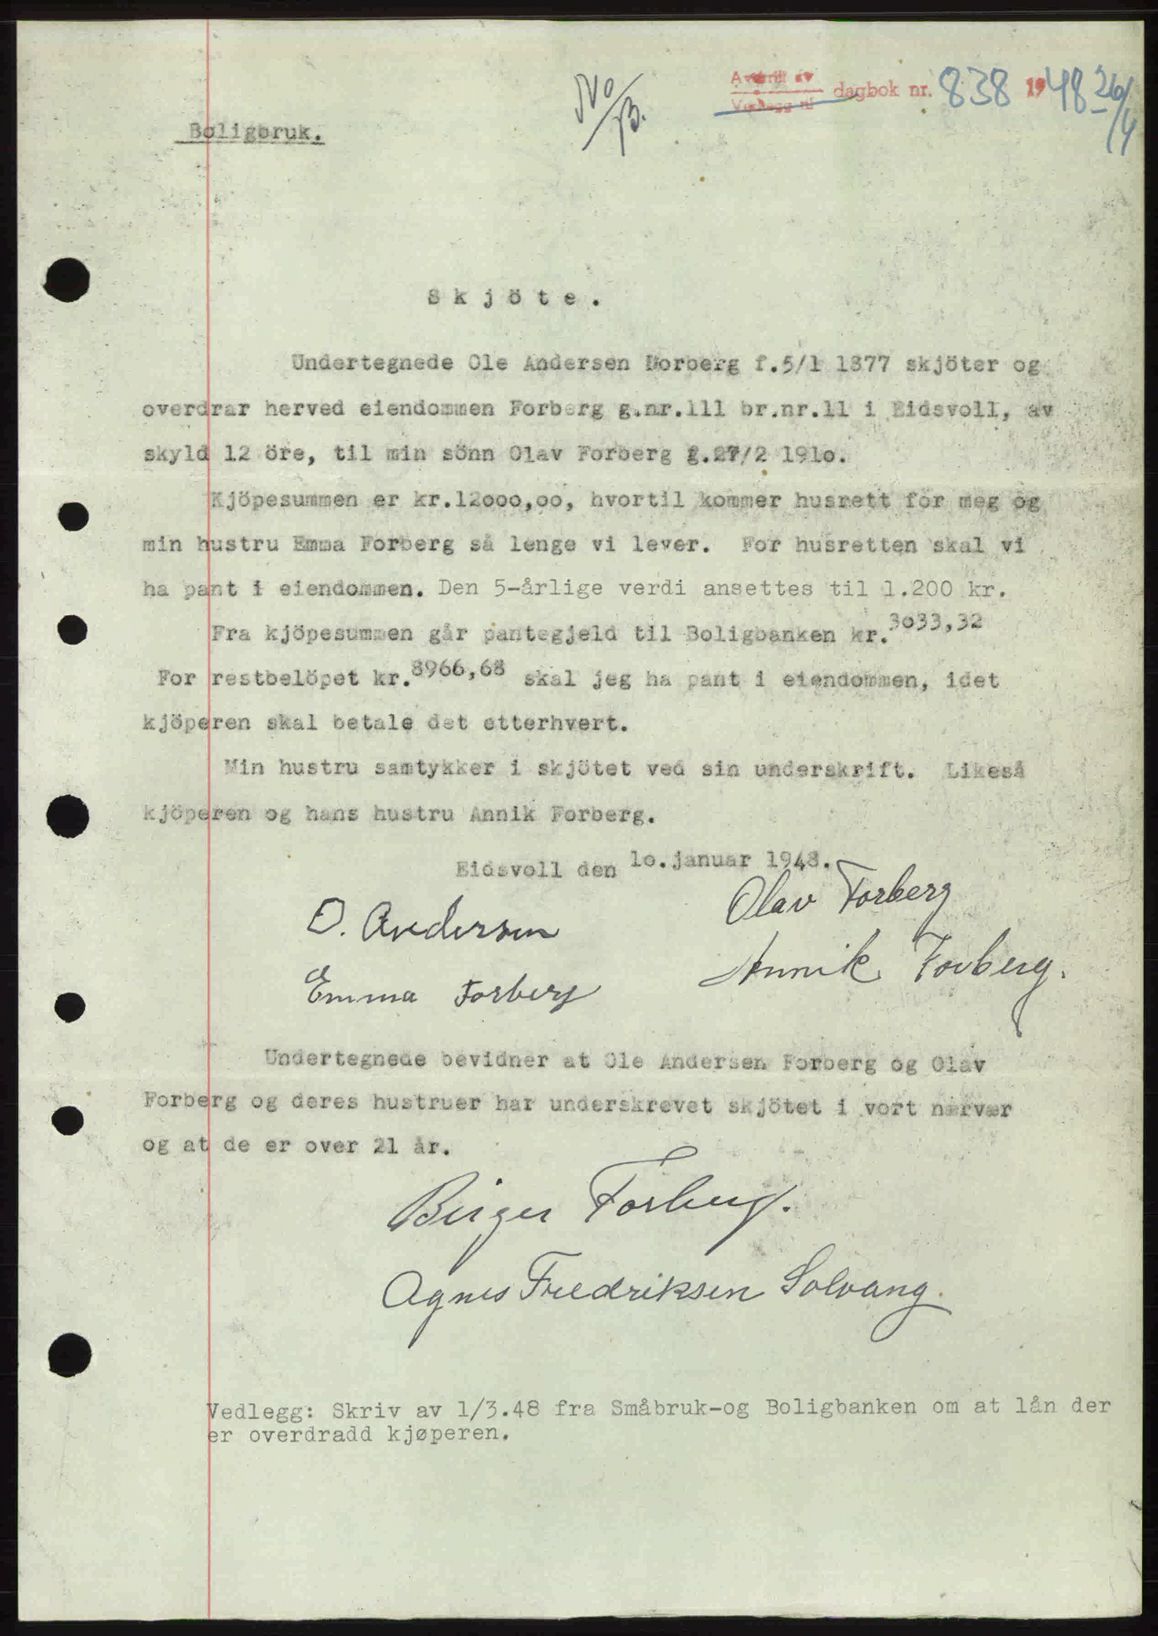 Avskrift av
Vedlegg til dagbok nr. 838 1948 26/4
Boligbruk.
Skjöte.
Undertegnede Ole Andersen Forberg f.5/1 1877 skjöter og
overdrar herved eiendommen Forberg g.nr.111 br.nr.11 i Eidsvoll, av
skyld 12 öre, til min sönn Olav Forberg f.27/2 1910.
Kjöpesummen er kr.12ooo,oo, hvortil kommer husrett for meg og
min hustru Emma Forberg så lenge vi lever. For husretten skal vi
ha pant i eiendommen. Den 5-årlige verdi ansettes til 1.200 kr.
Fra kjöpesummen går pantegjeld til Boligbanken kr.3o33,32
For restbelöpet kr.8966,68 skal jeg ha pant i eiendommen, idet
kjöperen skal betale det etterhvert.
Min hustru samtykker i skjötet ved sin underskrift. Likeså
kjöperen og hans hustru Annik Forberg.
Eidsvoll den 1o.januar 1948.
O. Andersen
Olav Forberg
Emma Forberg
Annik Forberg.
Undertegnede bevidner at Ole Andersen Forberg og Olav
Forberg og deres hustruer har underskrevet skjötet i vort nærvær
og at de er over 21 år.
Birger Forberg.
Agnes Fredriksen Solvang.
Vedlegg: Skriv av 1/3.48 fra Småbruk-og Boligbanken om at lån der
er overdradd kjøperen.